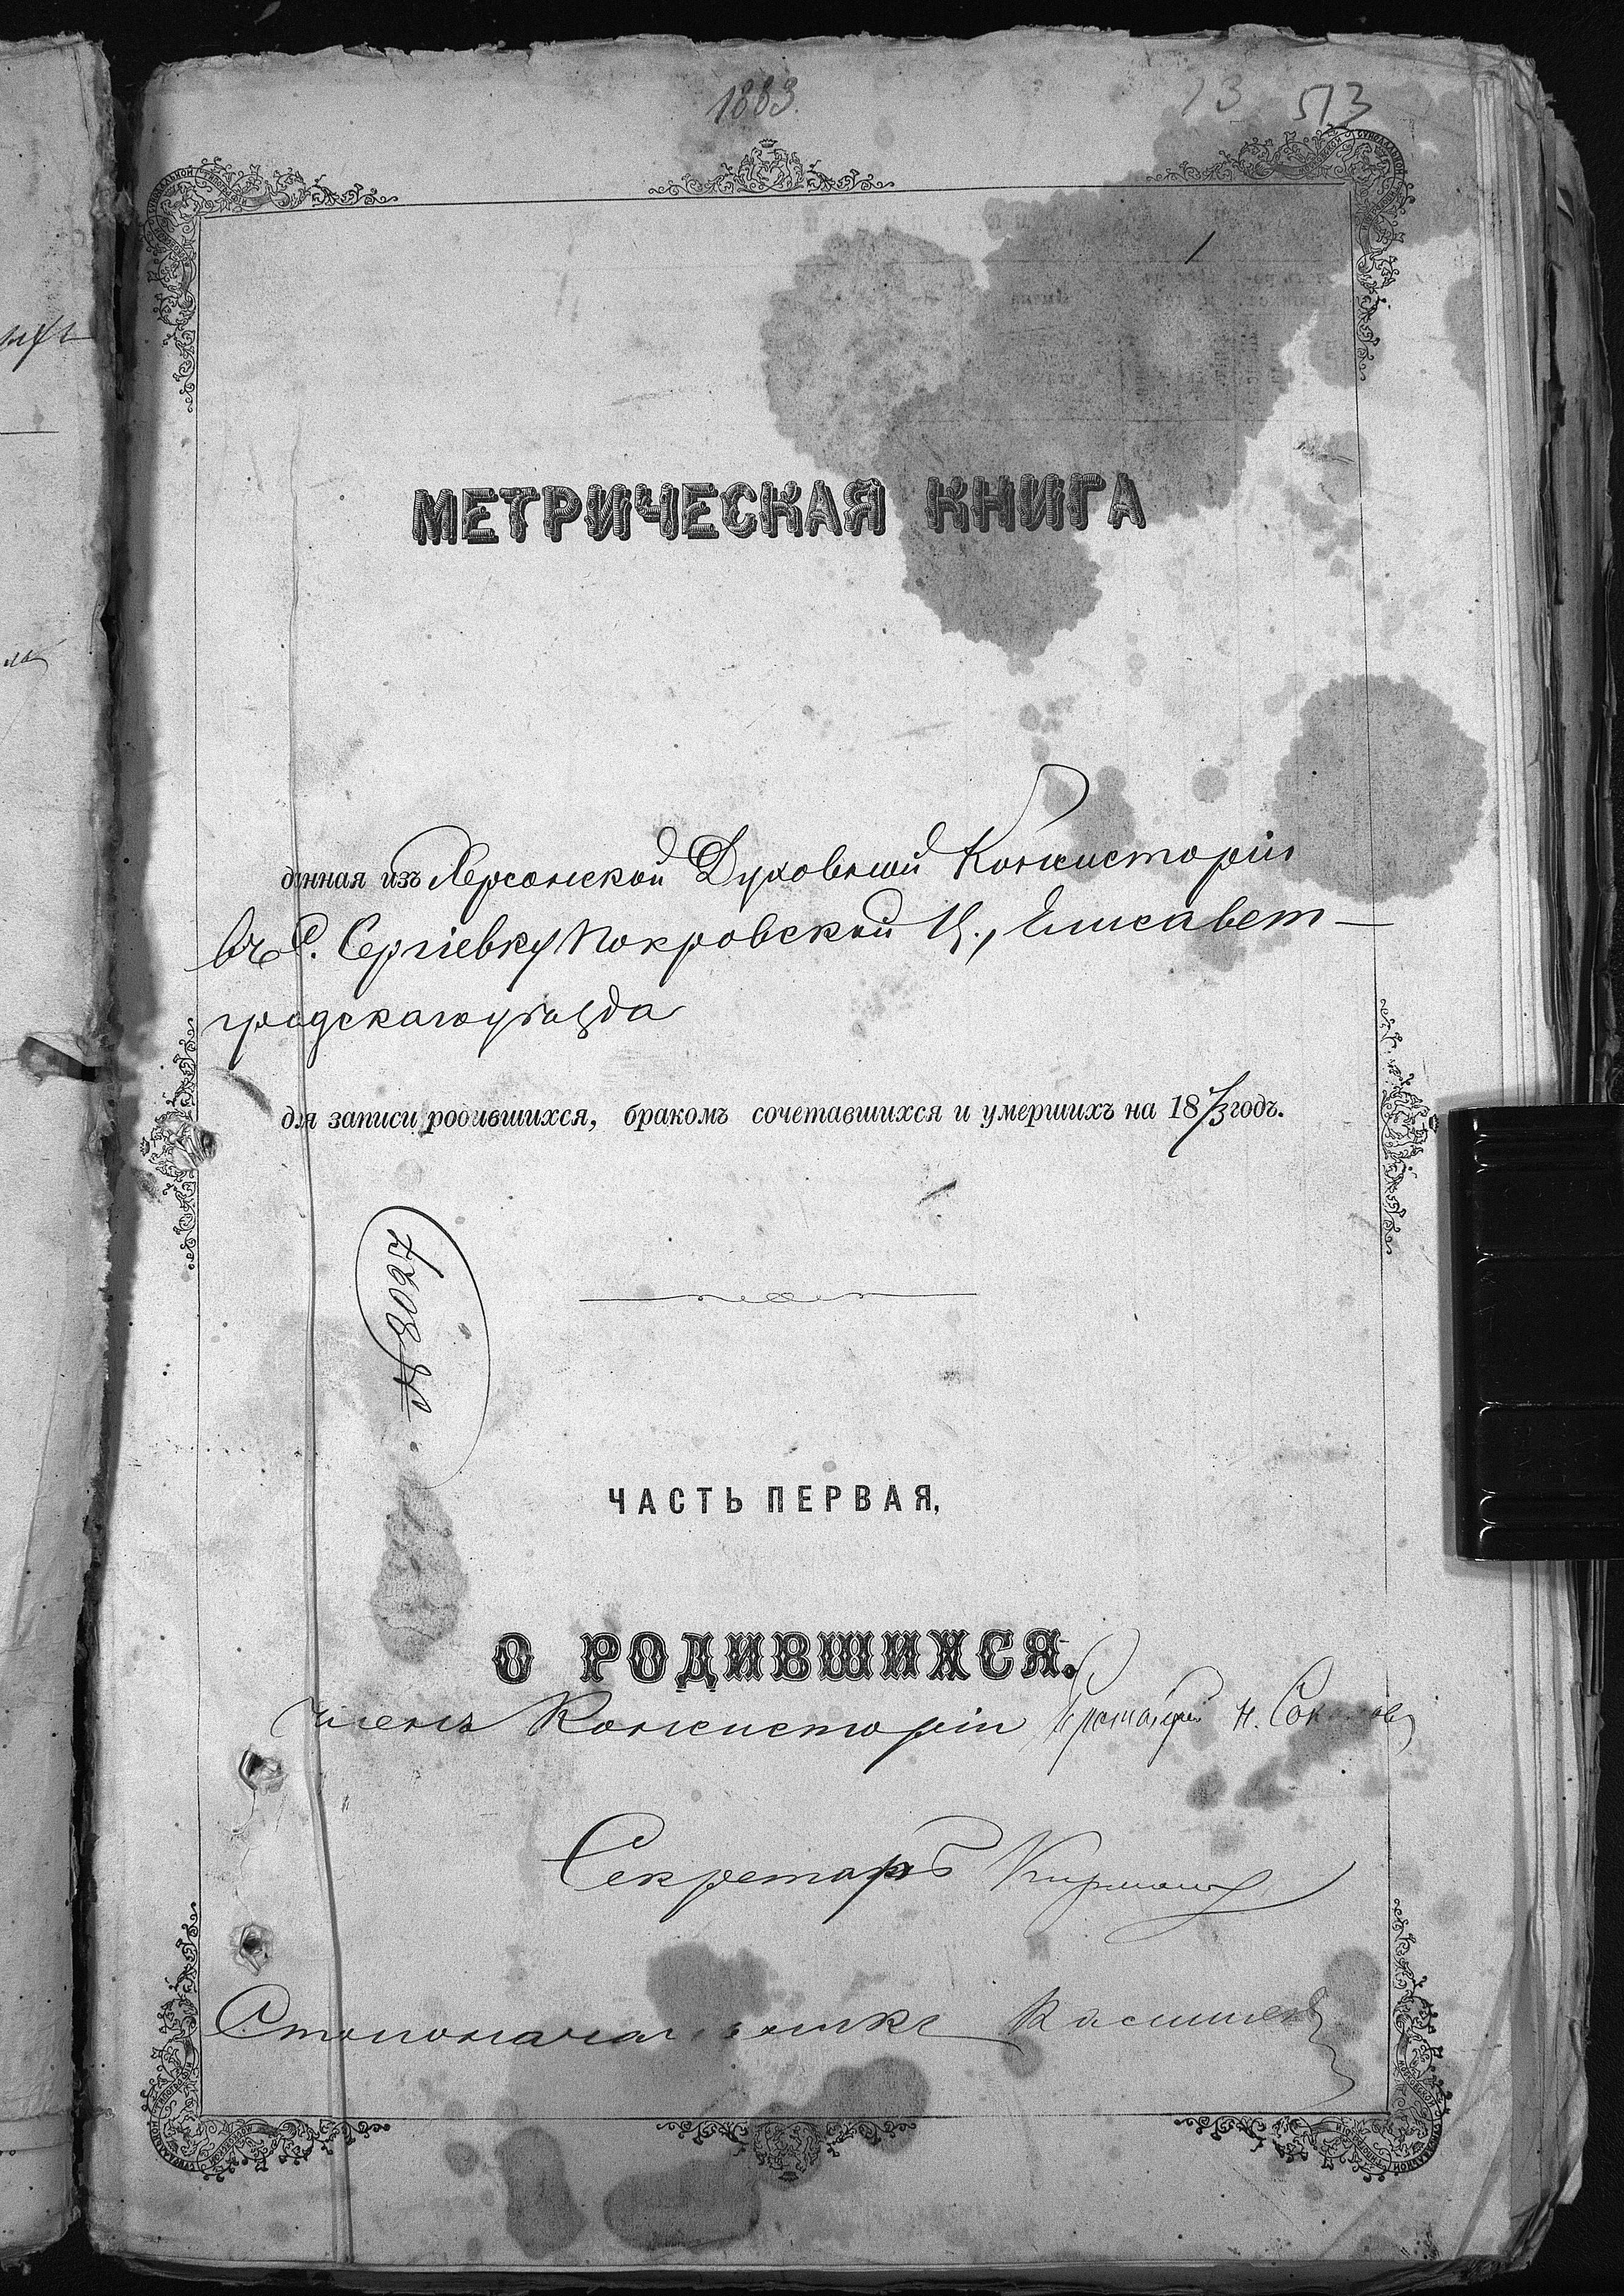 1883.
13 513
МЕТРИЧЕСКАЯ КНИГА
данная изъ Херсонской Духовной Консисторіи
въ С. Сергіевку Покровской Ц., Елисавет-
градскаго уѣзда
для записи родившихся, бракомъ сочетавшихся и умершихъ на 1873 годъ.
ЧАСТЬ ПЕРВАЯ,
О РОДИВШИХСЯ.
Членъ Консисторіи Протоіерей Н. Соколовъ
Секретарь
Столоначальникъ